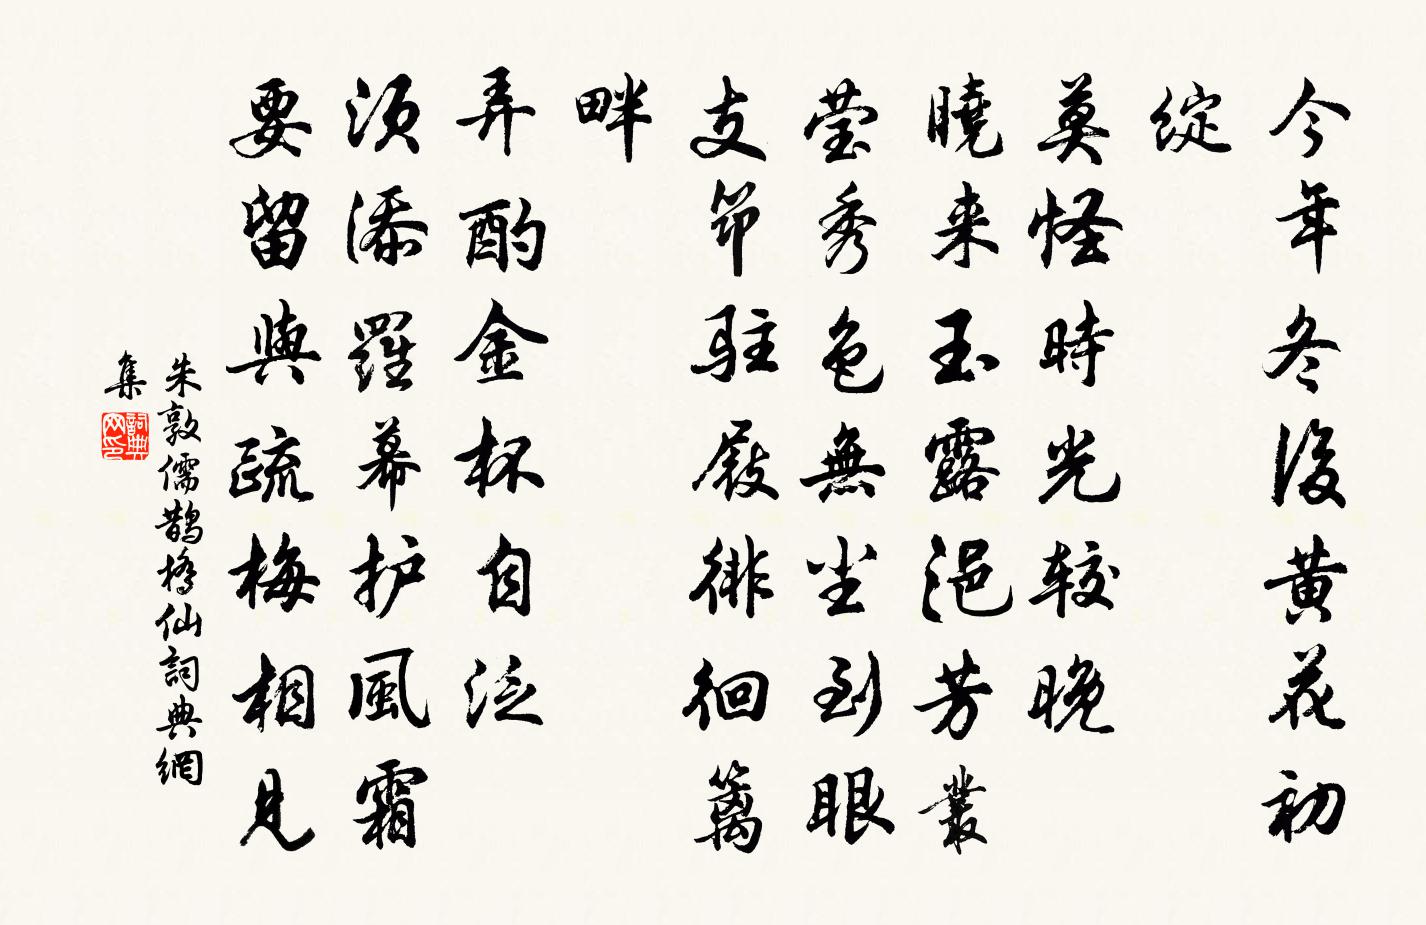 今年冬後黄花初
綻
莫怪時光較晚
曉来玉露浥芳叢
莹秀色無尘到眼
支筇駐屐徘徊篱
畔
弄酌金杯自泛
須添羅幕护風霜
要留與疏梅相見
朱敦儒鹊橋仙詞典網
集
詞典
网印